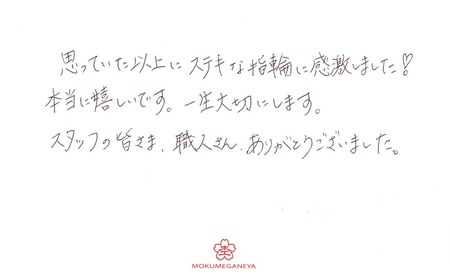 思っていた以上にステキな指輪に感激しました♡
本当に嬉しいです。一生大切にします。
スタッフの皆さま、職人さん、ありがとうございました。
MOKUMEGANEYA